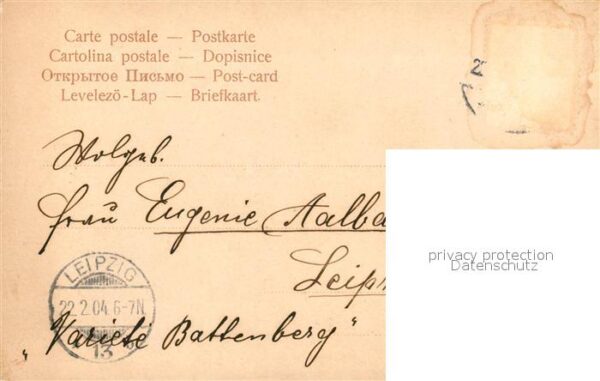 Carte postale — Postkarte
Cartolina postale — Dopisnice
Открытое Письмо — Post-card
Levelező-Lap — Briefkaart.
Wolgeb.
Frau Eugenie Aalba
privacy protection
Datenschutz
Leipz
LEIPZIG
22.2.04. 6-7N.
13
"Varieté Battenberg"